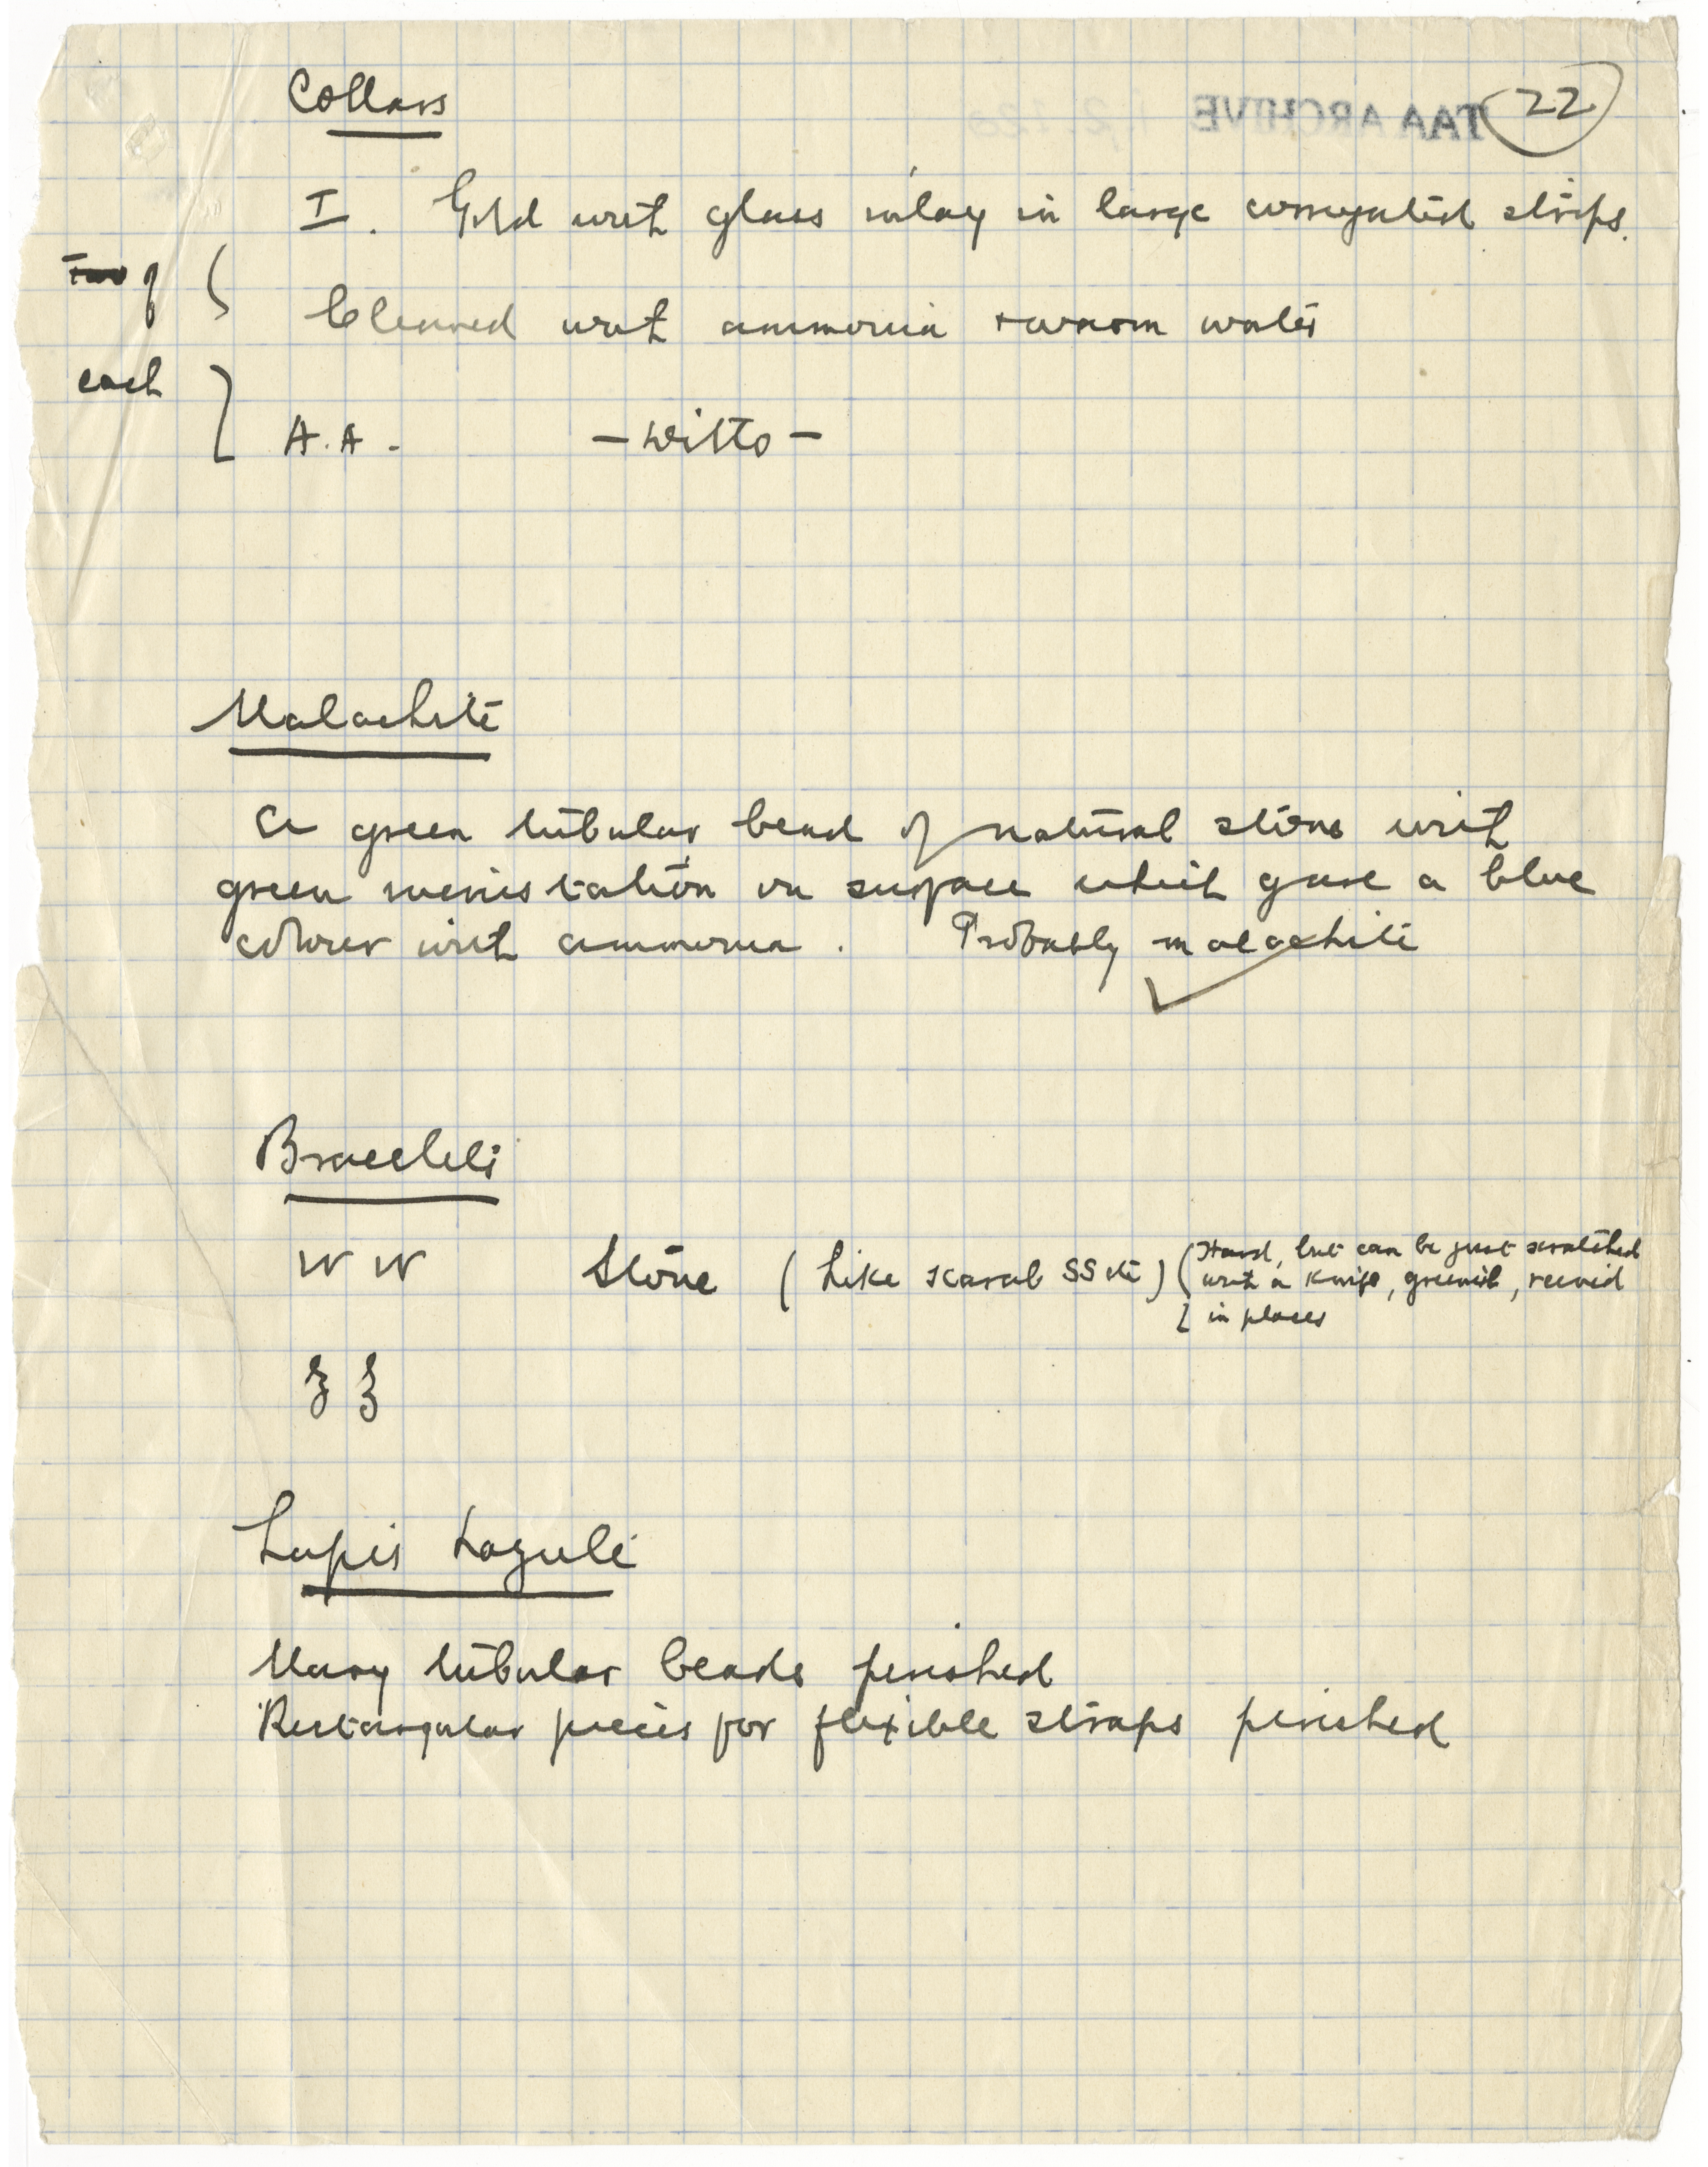 22
TAA ARCHIVE
Collars
I. Gold with glass inlay in large corrugated strips.
Two of
Cleaned with ammonia + warm water
each
A.A. - Ditto -
Malachite
A green tubular bead of natural stone with
green incrustation on surface which gave a blue
colour with ammonia. Probably malachite
Bracelets
W W Stone (Like scarab SS etc) (Hard, but can be just scratched
with a knife, greenish, veined
in places
Lapis Lazuli
Many tubular beads perished
Rectangular pieces for flexible straps perished